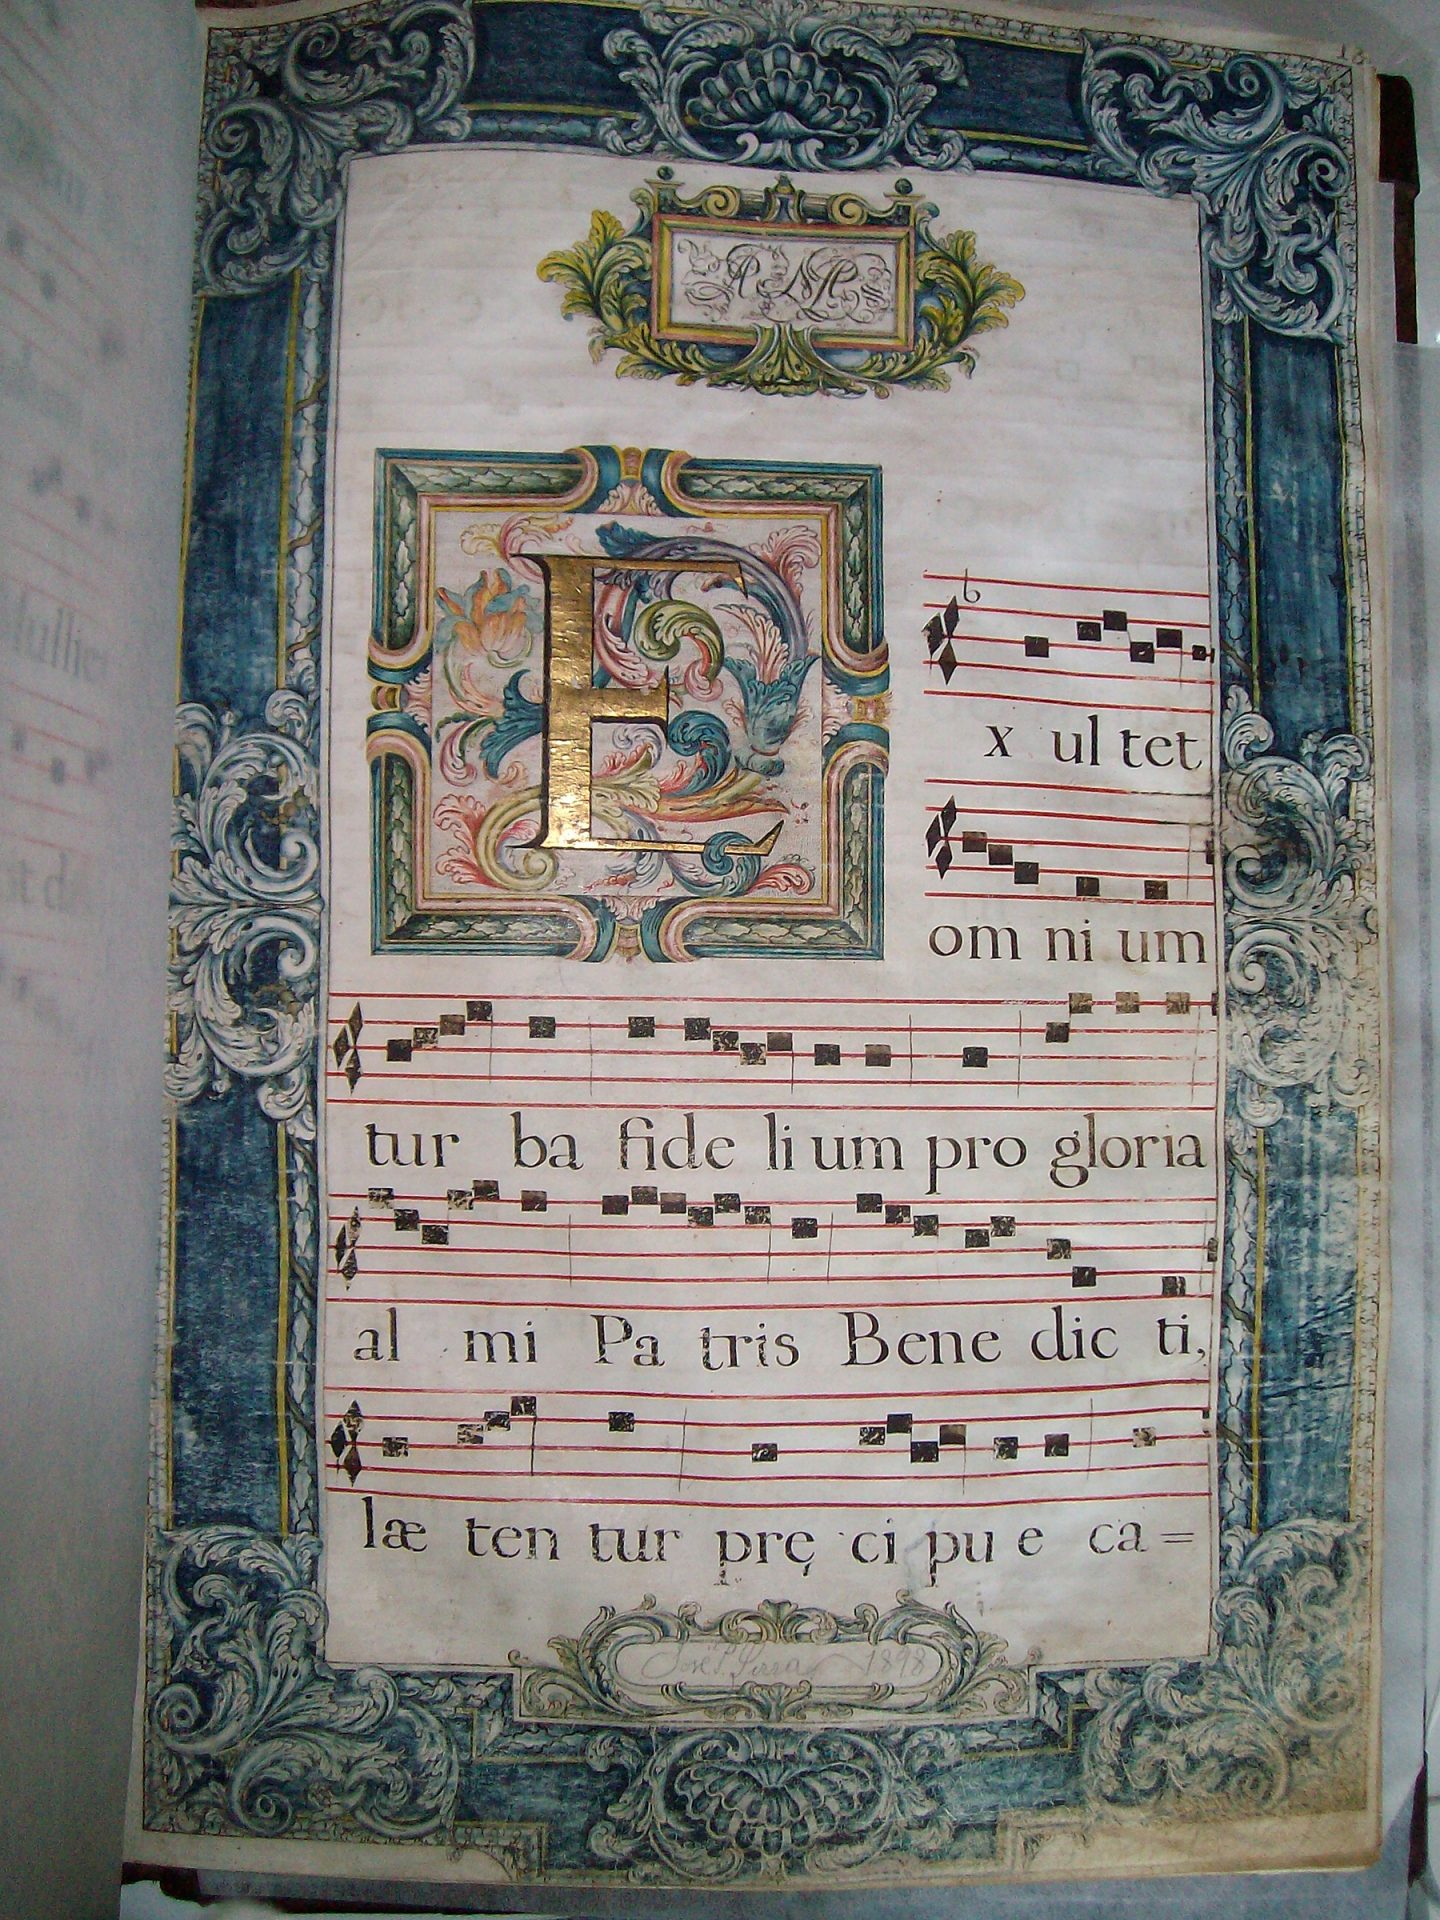 Exultet
omnium
turba fidelium pro gloria
almi Patris Benedicti,
lætentur pręcipue ca=
1898